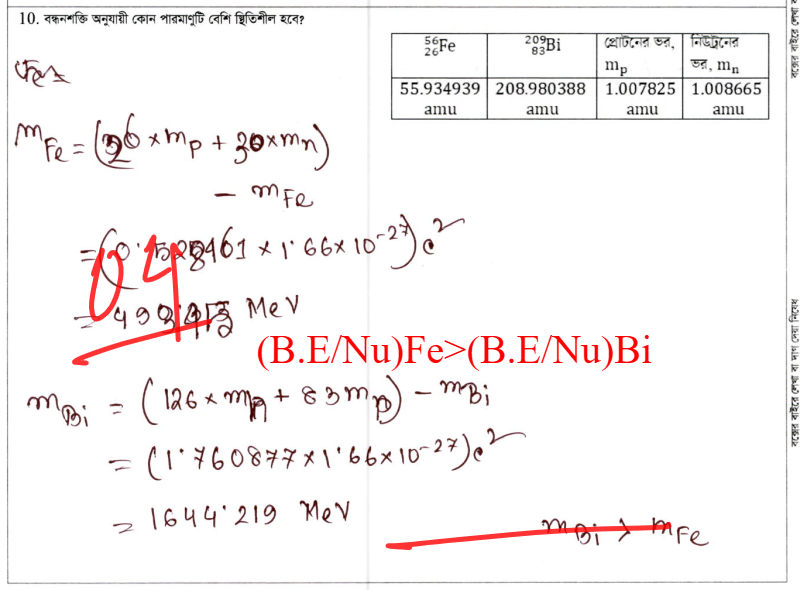 10. বন্ধনশক্তি অনুযায়ী কোন পারমাণুটি বেশি স্থিতিশীল হবে?
⁵⁶₂₆Fe ²⁰⁹₈₃Bi প্রোটনের ভর, mₚ নিউট্রনের ভর, mₙ
55.934939 amu 208.980388 amu 1.007825 amu 1.008665 amu
m_Fe = (26 × mₚ + 30 × mₙ)
− m_Fe
× 1.66 × 10⁻²⁷) c²
= MeV
04
(B.E/Nu)Fe>(B.E/Nu)Bi
m_Bi = (126 × mₙ + 83 mₚ) − m_Bi
= (1.760877 × 1.66 × 10⁻²⁷) c²
= 1644.219 MeV
m_Bi > m_Fe